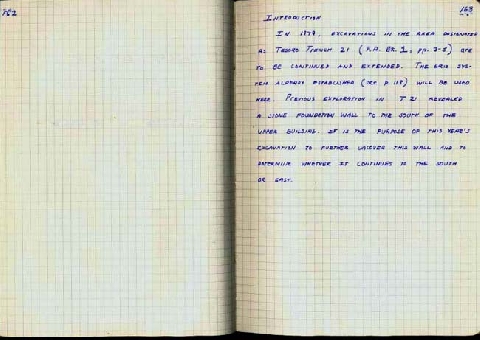 162
163
INTRODUCTION
IN 1978, EXCAVATIONS IN THE AREA DESIGNATED
AS TESORO TRENCH 21 ( pp. 3-8) ARE
TO BE CONTINUED AND EXTENDED. THE GRID SYS-
TEM ALREADY ESTABLISHED (SEE p ) WILL BE USED
HERE. PREVIOUS EXPLORATION IN T 21 REVEALED
A STONE FOUNDATION WALL TO THE SOUTH OF THE
UPPER BUILDING. IT IS THE PURPOSE OF THIS YEAR'S
EXCAVATION TO FURTHER UNCOVER THIS WALL AND TO
DETERMINE WHETHER IT CONTINUES TO THE SOUTH
OR EAST.